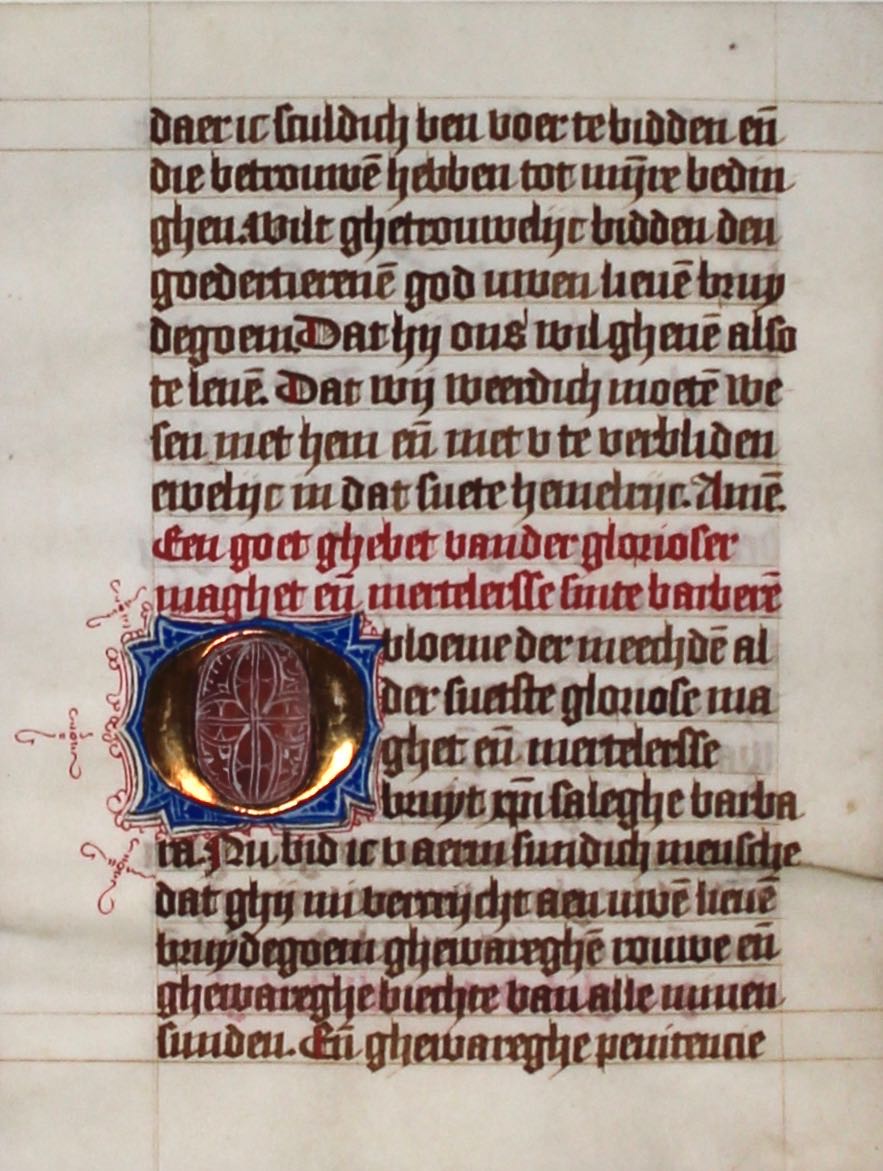 daer ic sculdich ben voer te bidden eñ
die betrouwē hebben tot mijre bedin
ghen. Wilt ghetrouwelijc bidden den
goedertierenē god uwen lieuē bruy
degoem. Dat hij ons wil gheuē also
te leuē. Dat wij weerdich moetē we
sen met hem eñ met v te verbliden
ewelijc in dat suete hemelrijc. Amē.
Een goet ghebet vander glorioser
maghet eñ mertelersse sinte barberē
O bloeme der meechdē al
der suetste gloriose ma
ghet eñ mertelersse
bruyt xp̄i saleghe barba
ra. Nu bid ic v aerm sundich mensche
dat ghij mi vercrijcht aen uwē lieuē
bruydegoem ghewareghē rouwe eñ
ghewareghe biechte van alle minen
sunden. Eñ ghewareghe penitencie